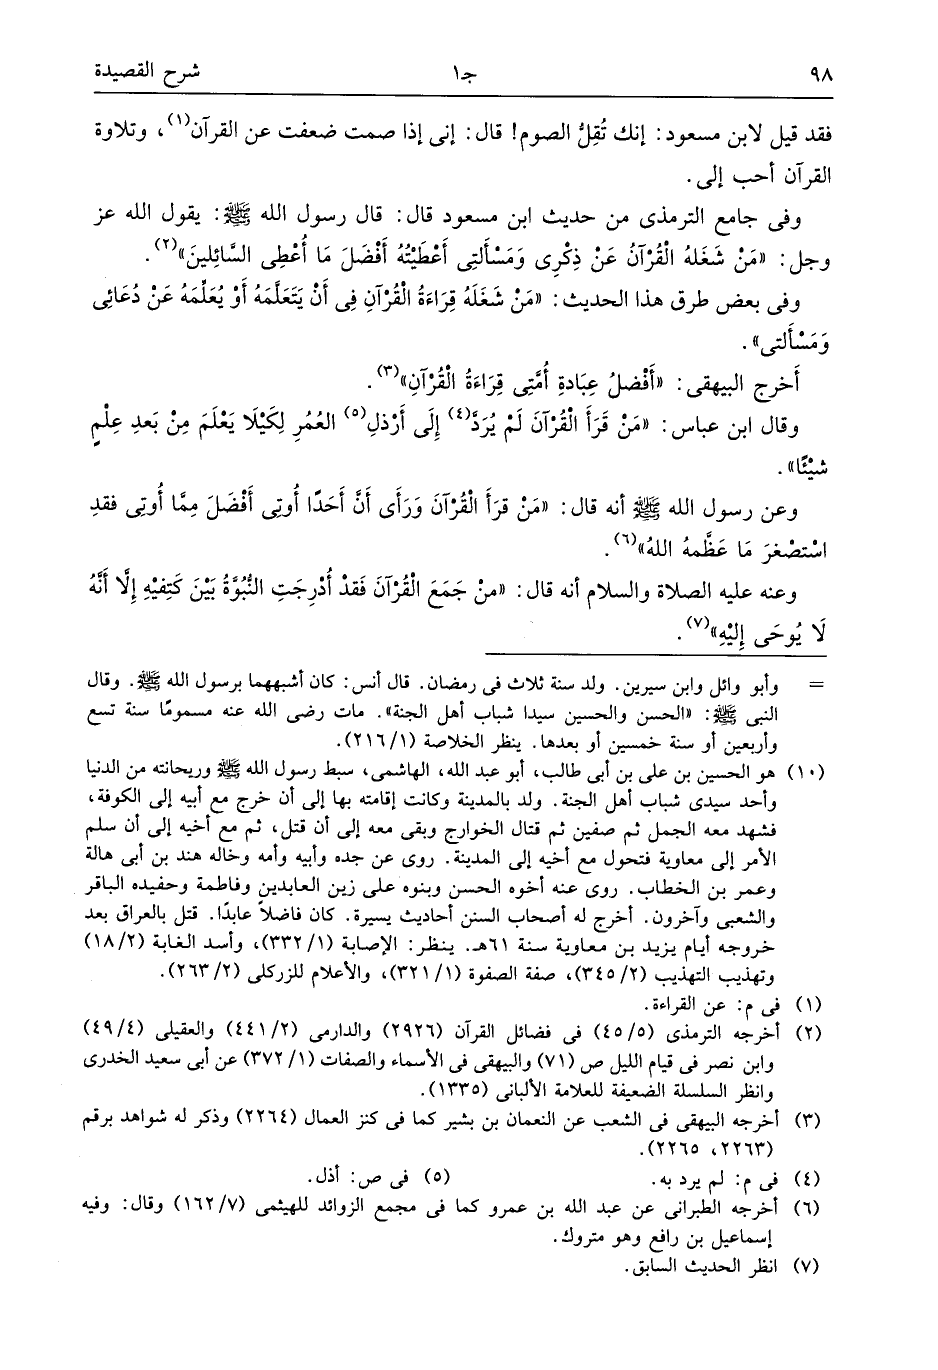 ٩٨ جـ١ شرح القصيدة
فقد قيل لابن مسعود: إنك تُقِلُّ الصوم! قال: إنى إذا صمت ضعفت عن القرآن(١)، وتلاوة
القرآن أحب إلى.
وفى جامع الترمذى من حديث ابن مسعود قال: قال رسول الله ﷺ: يقول الله عز
وجل: «مَنْ شَغَلهُ الْقُرْآنُ عَنْ ذِكْرِى وَمَسْأَلتِى أَعْطَيْتُهُ أَفْضَلَ مَا أُعْطِى السَّائِلينَ»(٢).
وفى بعض طرق هذا الحديث: «مَنْ شَغَلَهُ قِرَاءَةُ الْقُرْآنِ فِى أَنْ يَتَعَلَّمَهُ أَوْ يُعَلِّمَهُ عَنْ دُعَائِى
وَمَسْأَلتى».
أَخرج البيهقى: «أَفْضلُ عِبَادةِ أُمَّتِى قِرَاءَةُ الْقُرْآنِ»(٣).
وقال ابن عباس: «مَنْ قَرَأَ الْقُرْآنَ لَمْ يُرَدَّ(٤) إِلَى أَرْذلِ(٥) العُمُرِ لِكَيْلَا يَعْلَمَ مِنْ بَعدِ عِلْمٍ
شيْئًا».
وعن رسول الله ﷺ أنه قال: «مَنْ قرَأَ الْقُرْآنَ وَرَأَى أَنَّ أَحَدًا أُوتِى أَفْضَلَ مِمَّا أُوتِى فقدِ
اسْتصْغرَ مَا عَظَّمهُ اللهُ»(٦).
وعنه عليه الصلاة والسلام أنه قال: «منْ جَمَعَ الْقُرْآنَ فَقدْ أُدْرِجَتِ النُّبُوَّةُ بَيْنَ كَتِفيْهِ إِلَّا أَنَّهُ
لَا يُوحَى إِليْهِ»(٧).
= وأبو وائل وابن سيرين. ولد سنة ثلاث فى رمضان. قال أنس: كان أشبههما برسول الله ﷺ. وقال
النبى ﷺ: «الحسن والحسين سيدا شباب أهل الجنة». مات رضى الله عنه مسمومًا سنة تسع
وأربعين أو سنة خمسين أو بعدها. ينظر الخلاصة (٢١٦/١).
(١٠) هو الحسين بن على بن أبى طالب، أبو عبد الله، الهاشمى، سبط رسول الله ﷺ وريحانته من الدنيا
وأحد سيدى شباب أهل الجنة. ولد بالمدينة وكانت إقامته بها إلى أن خرج مع أبيه إلى الكوفة،
فشهد معه الجمل ثم صفين ثم قتال الخوارج وبقى معه إلى أن قتل، ثم مع أخيه إلى أن سلم
الأمر إلى معاوية فتحول مع أخيه إلى المدينة. روى عن جده وأبيه وأمه وخاله هند بن أبى هالة
وعمر بن الخطاب. روى عنه أخوه الحسن وبنوه على زين العابدين وفاطمة وحفيده الباقر
والشعبى وآخرون. أخرج له أصحاب السنن أحاديث يسيرة. كان فاضلاً عابدًا. قتل بالعراق بعد
خروجه أيام يزيد بن معاوية سنة ٦١هـ. ينظر: الإصابة (٣٣٢/١)، وأسد الغابة (١٨/٢)
وتهذيب التهذيب (٣٤٥/٢)، صفة الصفوة (٣٢١/١)، والأعلام للزركلى (٢٦٣/٢).
(١) فى م: عن القراءة.
(٢) أخرجه الترمذى (٤٥/٥) فى فضائل القرآن (٢٩٢٦) والدارمى (٤٤١/٢) والعقيلى (٤٩/٤)
وابن نصر فى قيام الليل ص (٧١) والبيهقى فى الأسماء والصفات (٣٧٢/١) عن أبى سعيد الخدرى
وانظر السلسلة الضعيفة للعلامة الألبانى (١٣٣٥).
(٣) أخرجه البيهقى فى الشعب عن النعمان بن بشير كما فى كنز العمال (٢٢٦٤) وذكر له شواهد برقم
(٢٢٦٣، ٢٢٦٥).
(٤) فى م: لم يرد به. (٥) فى ص: أذل.
(٦) أخرجه الطبرانى عن عبد الله بن عمرو كما فى مجمع الزوائد للهيثمى (١٦٢/٧) وقال: وفيه
إسماعيل بن رافع وهو متروك.
(٧) انظر الحديث السابق.